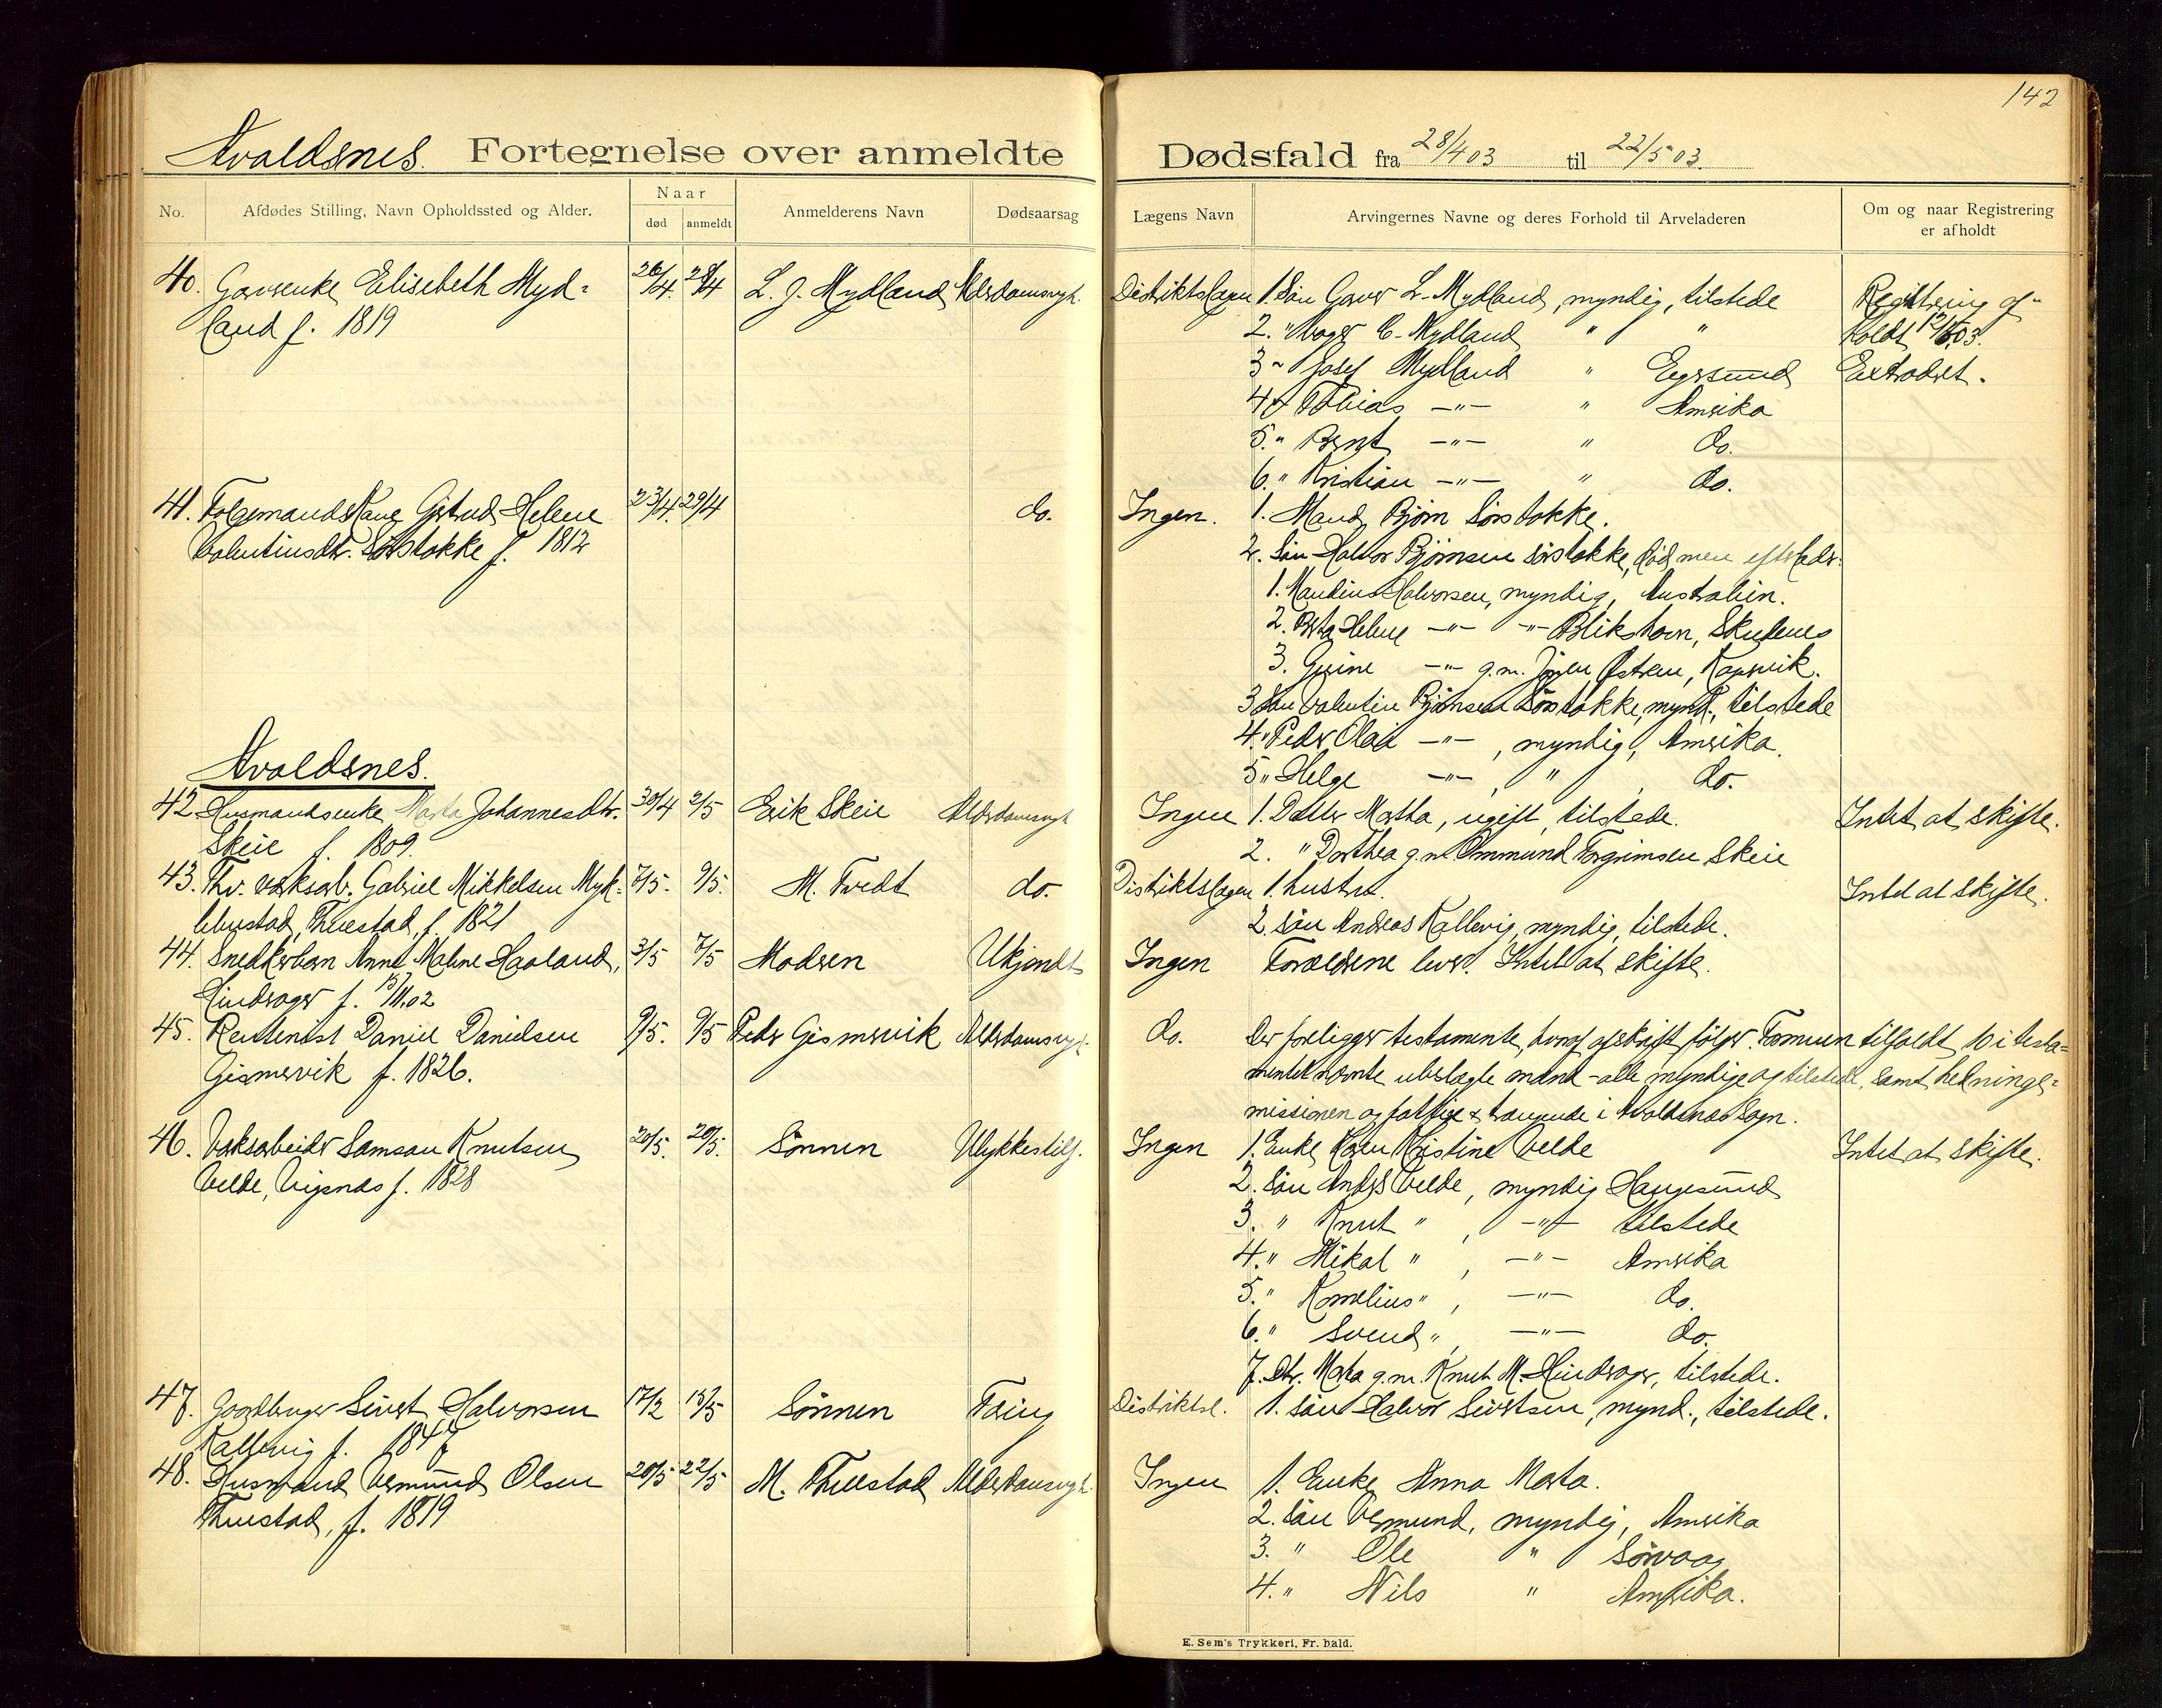 142
Avaldsnes. Fortegnelse over anmeldte Dødsfald fra 28/4 03 til 22/5 03.
No. Afdødes Stilling, Navn Opholdssted og Alder. Naar død anmeldt Anmelderens Navn Dødsaarsag Lægens Navn Arvingernes Navne og deres Forhold til Arveladeren Om og naar Registrering er afholdt
40. Garverenke Elisebeth Myd= 26/4. 28/4 L. J. Mydland Alderdomsvgh. Distriktslægen 1. Søn Garver L. Mydland, myndig, tilstede Registrering af-
land f. 1819 2. " Bager C. Mydland " " holdt 12/6 03.
3 " Josef Mydland " Egersund Extraderet.
4 " Tobias —"— " Amerika
5. " Bernt —"— " do.
6. " Kristian —"— " do.
41. Folgemandskone Gjertrud Helene 23/4. 29/4 do. Ingen. 1. Mand Bjørn Sørstokke.
Valentinsdtr. Sørstokke f. 1812 2. Søn Halvor Bjørnsen Sørstokke, død, men efterlader:
1. Maudius Halvorsen, myndig, Australien.
2. Berta Helene —"— —"— Blikshavn, Skudenes
3. Gjerine —"— g.m. Jørgen Østrem, Kopervik.
3 Søn Valentin Bjørnsen Sørstokke, mynd., tilstede
4. " Peder Olai —"—, myndig, Amerika.
5 " Helge —"—, " , do.
Avaldsnes.
42 Husmandsenke Marta Johannesdtr. 30/4 2/5 Erik Skeie Alderdomsvgh Ingen 1. Datter Martha, ugift, tilstede. Intet at skifte.
Skeie f. 1809. 2. " Dorthea g.m. Ommund Torgrimsen Skeie
43. Fhv. værksarb. Gabriel Mikkelsen Myk= 7/5. 9/5. M. Tvedt do. Distriktslægen 1. hustru. Intet at skifte.
lebustad, Thuestad, f. 1821 2. Søn Andreas Kallevig, myndig, tilstede.
44. Snedkerbarn Anne Maline Haaland, 3/5 7/5 Moderen Ukjendt Ingen Forældrene lever. Intet at skifte.
Hindrager f. 15/11.02
45. Rentenist Daniel Danielsen 9/5. 9/5 Peder Gismervik Alderdomsvgh. do. Der foreligger testamente, hvoraf afskrift følger. Formuen tilfaldt 10 i testa=
Gismervik f. 1826. mentet nævnte ubeslægte mænd - alle myndige og tilstede, samt hedninge=
missionen og fattige & trængende i Avaldsnes Sogn.
46. Værksarbeider Samson Knutsen 20/5. 20/5. Sønnen Ulykkestilf. Ingen 1. Enke Karen Kristine Velde Intet at skifte.
Velde, Vigsnæs f. 1828 2. Søn Anders Velde, myndig Haugesund
3. " Knut " , —"— tilstede
4. " Mikal " , —"— Amerika
5. " Kornelius " , —"— do.
6. " Svend " , —"— do.
7. Dtr. Marta g.m. Knut M. Hindrager, tilstede.
47. Gaardbruger Sivert Halvorsen 17/2 13/5 Sønnen Tæring Distriktsl. 1. Søn Halvor Sivertsen, mynd., tilstede.
Kallevig f. 1847
48. Husmand Vermund Olsen 20/5 22/5 M. Thuestad Alderdomsvgh. Ingen 1. Enke Anna Marta.
Thuestad, f. 1819 2. Søn Vermund, myndig, Amerika
3. " Ole " Sørvaag
4. " Nils " Amerika.
E. Sem's Trykkeri, Fr. hald.